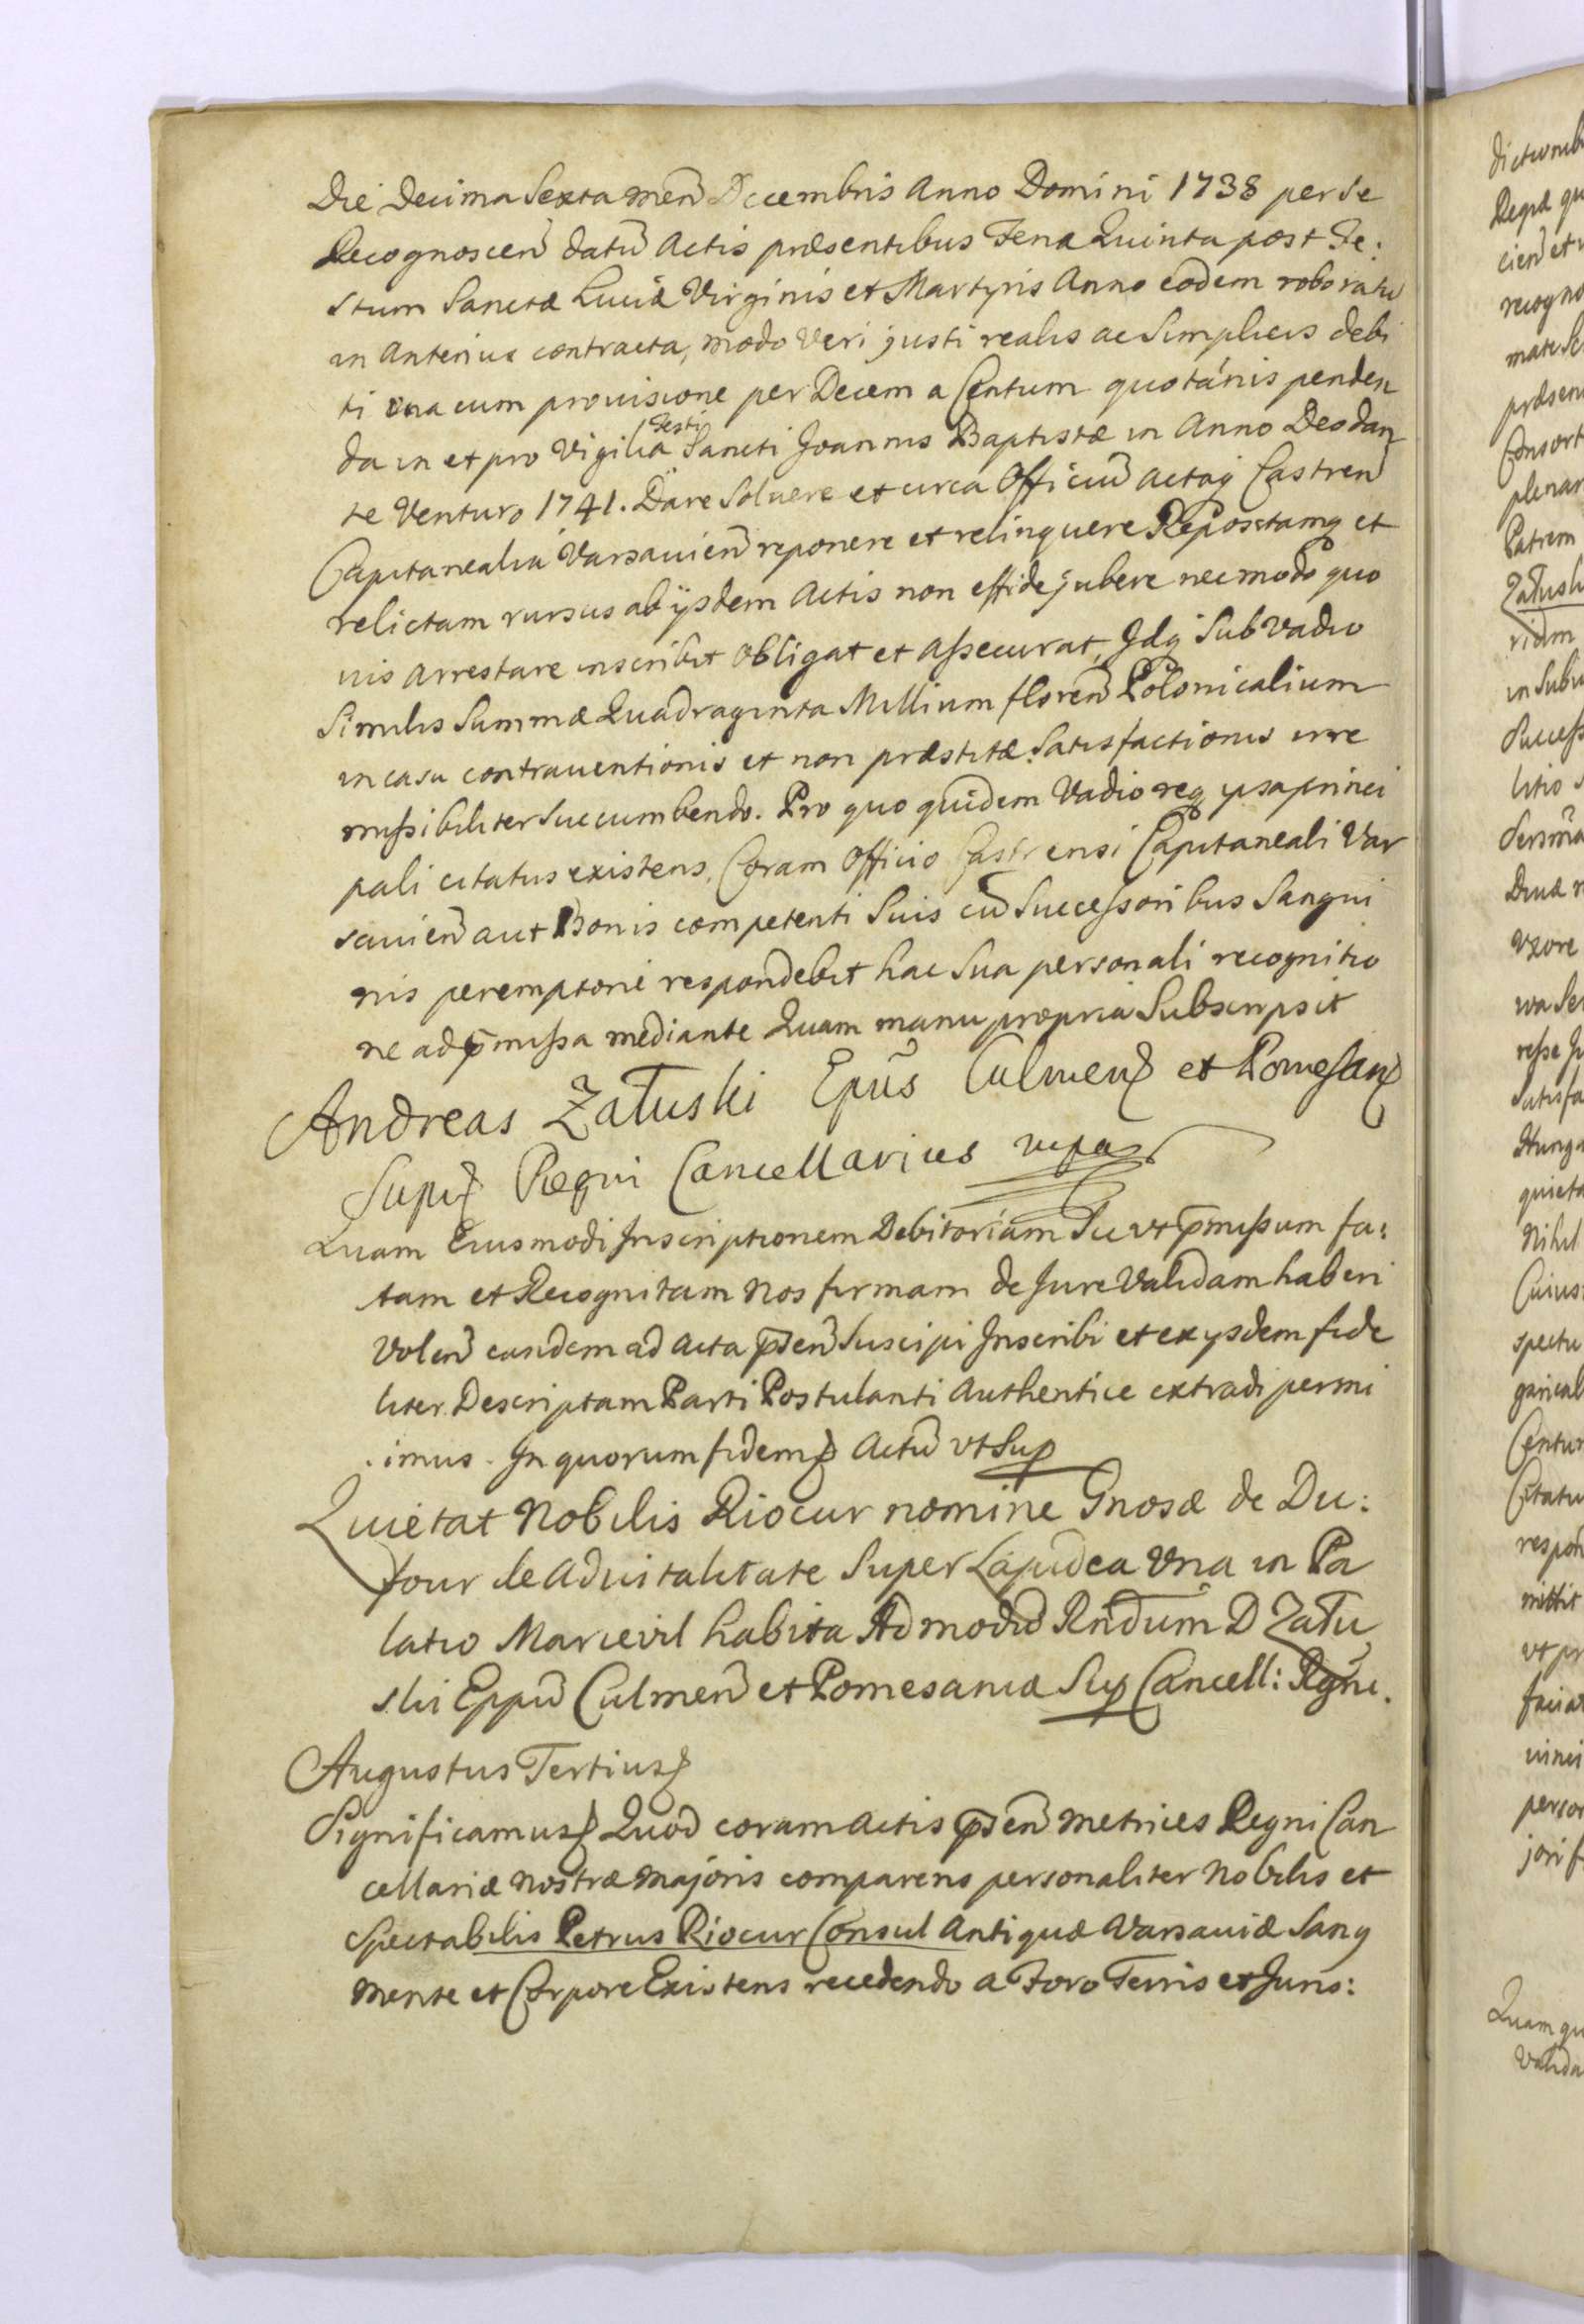 Die Decima Sexta Men̄ Decembris Anno Domini 1738 per se
Recognoscen̄ datū Actis præsentibus Feria Quinta post Fe:
stum Sanctæ Luciæ Virginis et Martyris Anno eodem roboratu
in Anterius contracta, modo Veri justi realis ac Simplicis debi
ti una cum prouisione per Decem a Centum quotánis penden
da in et pro Vigilia Festi Sancti Joannis Baptistæ in Anno Deo dan
te Venturo 1741. Dare Soluere et circa Officiū Actaq Castren̄
Capitanealia Varsauien̄ reponere et relinquere Repositamq et
relictam rursus ab ijsdem Actis non effide jubere nec modo quo
uis Arrestare inscribit Obligat et Assecurat, Idq Sub Vadio
Similis Summæ Quadraginta Millium floren̄ Polonicalium
in casu contrauentionis et non præstitæ Satisfactionis irre
missibiliter Succumbendo. Pro quo quidem Vadio req ipsa princi
pali citatus existens, Coram Officio Castrensi Capitaneali Var
sauien̄ aut Bonis competenti Suis cū Successoribus Sangui
nis peremptorie respondebit hac Sua personali recognitio
ne ad p̄missa mediante Quam manu propria Subscripsit
Andreas Załuski Epūs Culmens et Pomesans
Supȝ Regni Cancellarius mpa
Quam Eiusmodi Inscriptionem Debitoriam Sic vt p̄missum fa:
tam et Recognitam Nos firmam de Jure Validam haberi
Volen̄ eandem ad Acta p̄sen̄ Suscipi Inscribi et ex ysdem fide
liter Descriptam Parti Postulanti Authentice extradi permi
imus. In quorum fidemȝ Actū vt Sup
Quietat Nobilis Riocur nomine Gnosæ de Du:
four de Aduitalitate Super Lapidea Vna in Pa
latio Marievil habita Admodū Rndum D Zału
ski Eppū Culmen̄ et Pomesaniæ Sup Cancell: Regni.
Augustus Tertiusȝ
Significamusȝ Quod coram Actis p̄sen̄ Metrices Regni Can
cellariæ Nostræ Majoris comparens personaliter Nobilis et
Spectabilis Petrus Riocur Consul Antiquæ Varsauiæ Sanq
Mente et Corpore Existens recedendo a Foro Terris et Juris: